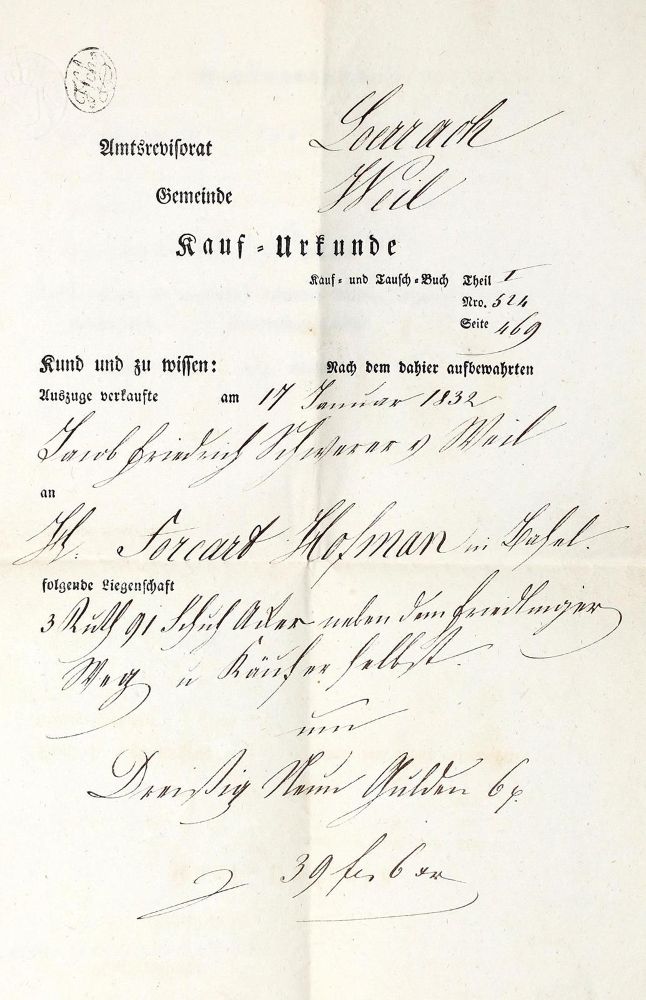 Amtsrevisorat Loerrach
Gemeinde Weil
Kauf-Urkunde
Kauf- und Tausch-Buch Theil I
Nro. 524
Seite 469
Kund und zu wissen: Nach dem dahier aufbewahrten
Auszuge verkaufte am 17 Januar 1832
Jacob Friedrich Scherer v Weil
an
H. Forcart Hofman in Basel.
folgende Liegenschaft
3 Ruth 91 Schuh Aker neben dem Friedlinger
Weg u Käufer selbst.
um
Dreißig Neun Gulden 6
39 f 6 xr